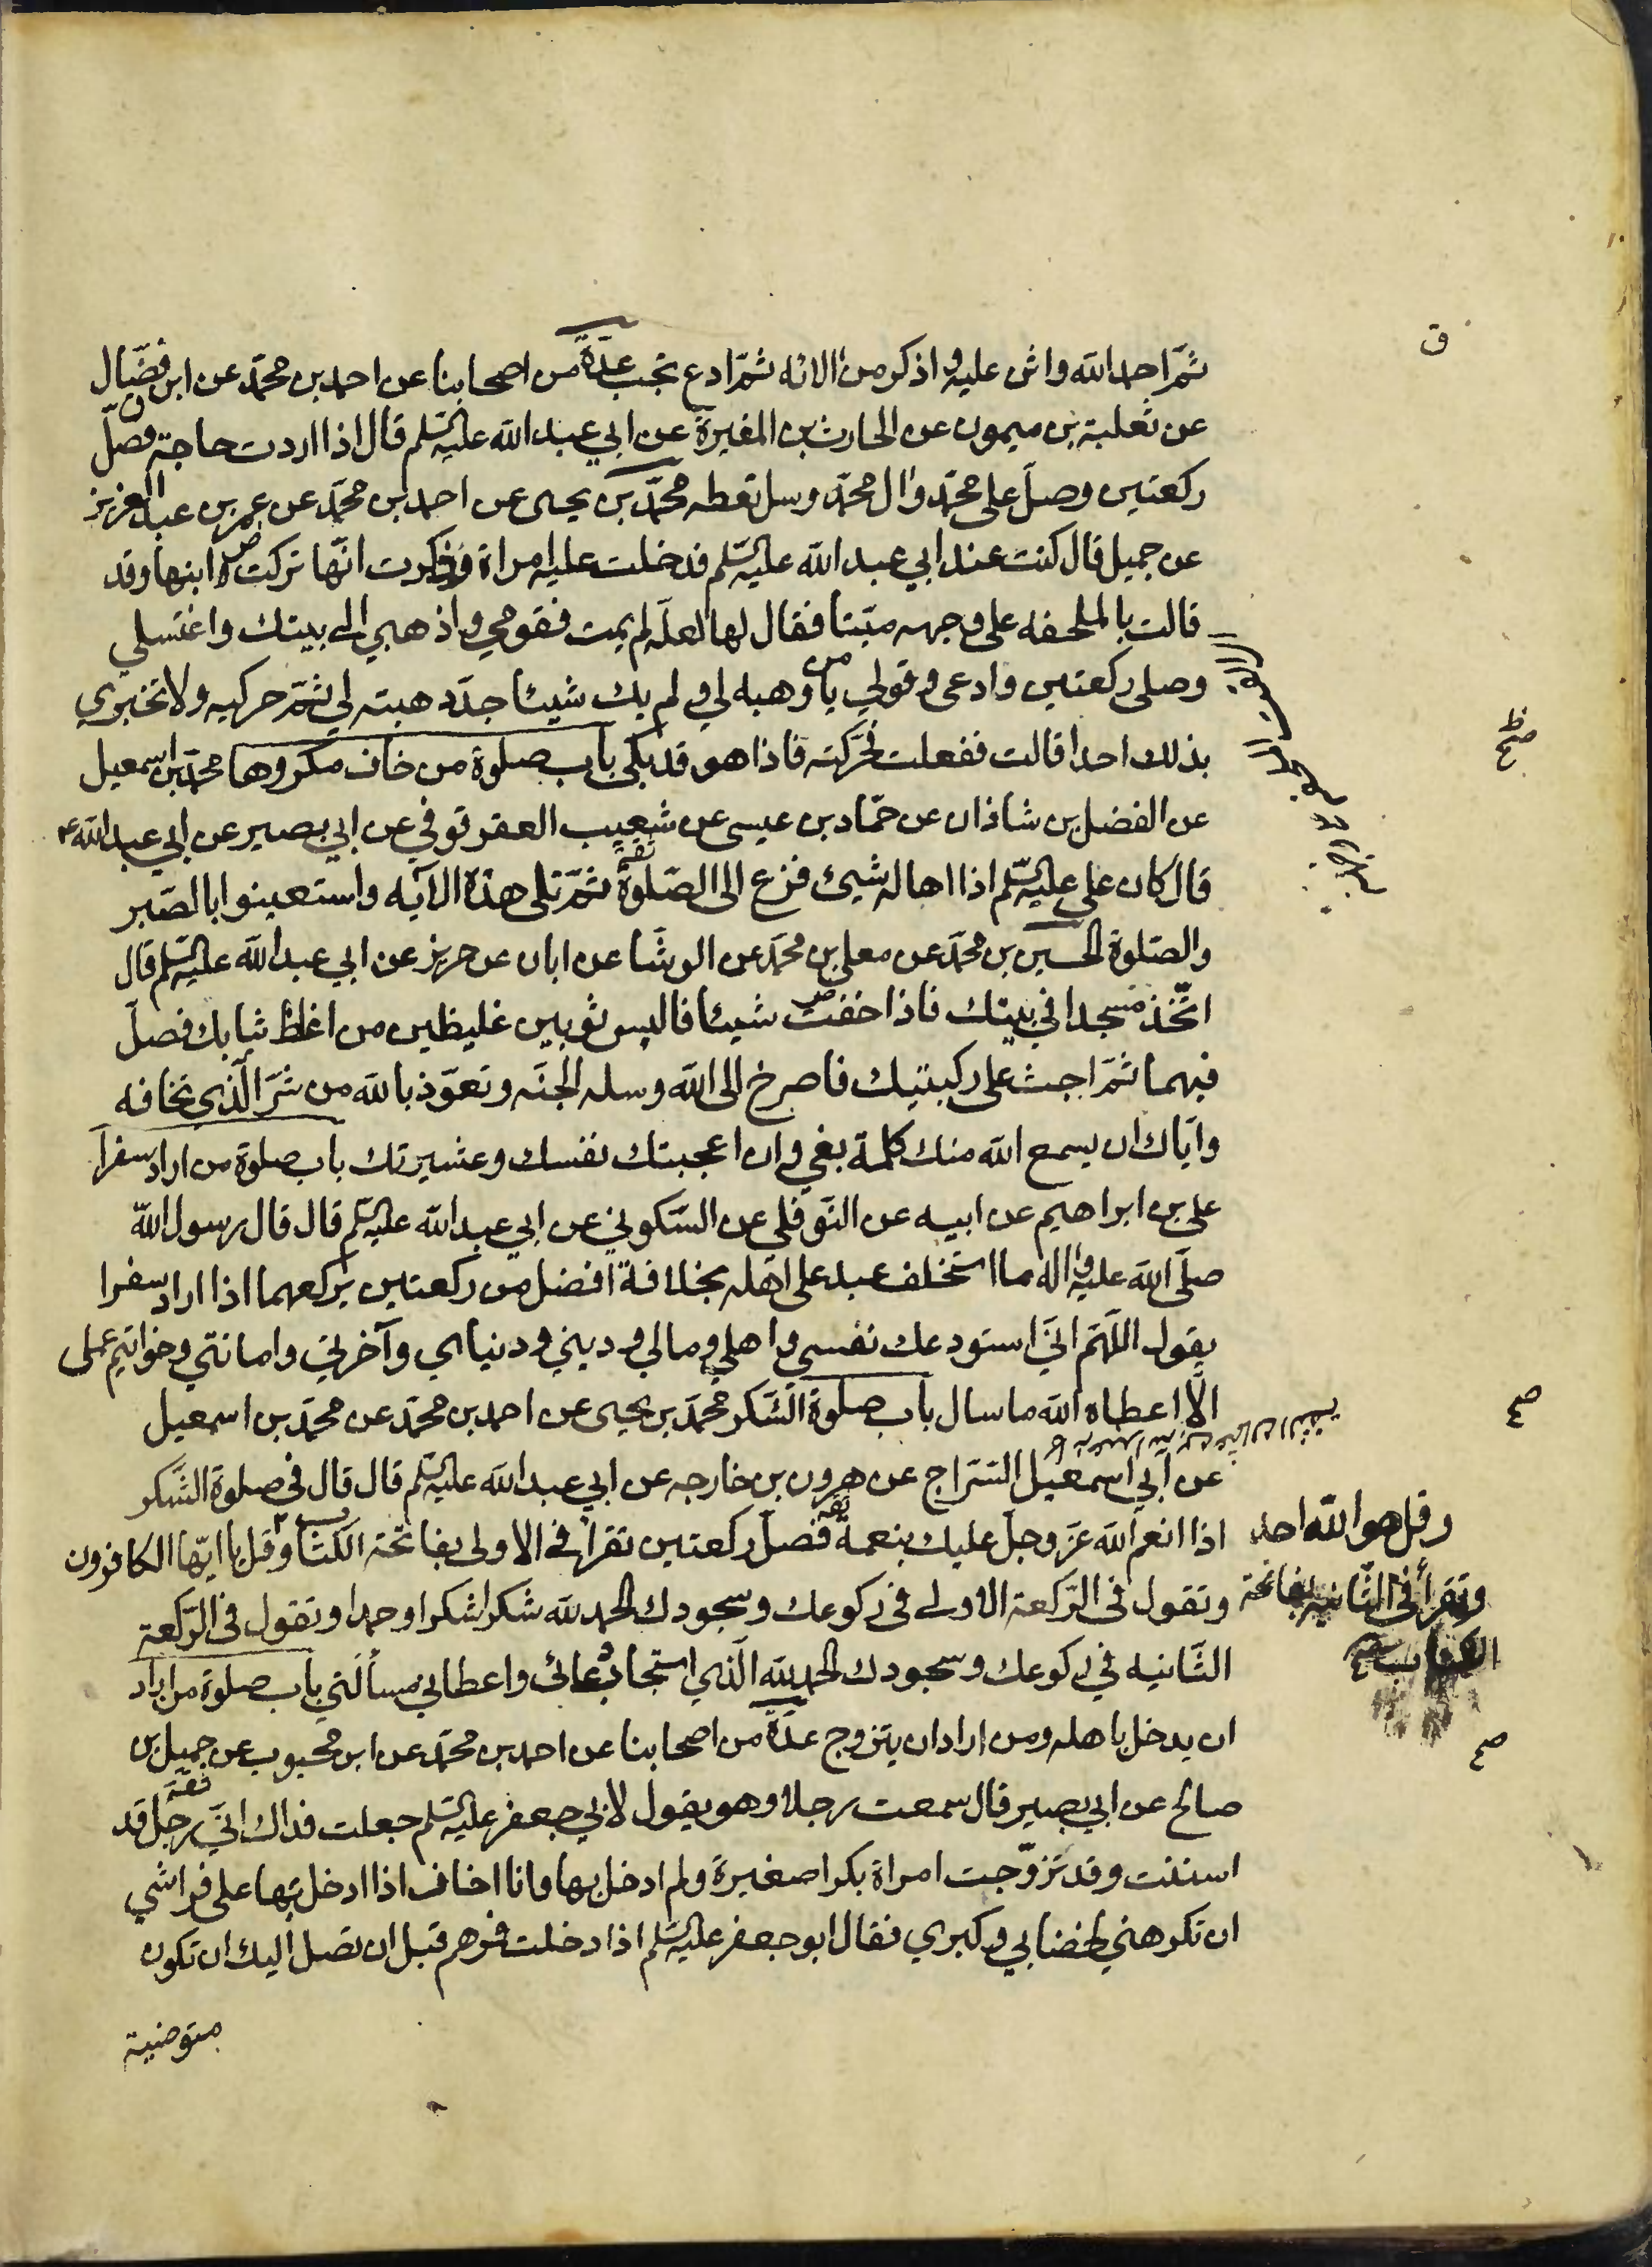 ثمّ احمد الله واثن عليه واذكر من الائه ثمّ ادع تجب عدّة من اصحابنا عن احمد بن محمّد عن ابن فضّال
عن ثعلبة بن ميمون عن الحارث بن المغيرة عن ابي عبد الله عليه السّلم قال اذا اردت حاجة فصلّ
ركعتين وصلّ على محمّد وال محمّد وسل تعطه محمّد بن يحيى عن احمد بن محمّد عن عمر بن عبد العزيز
عن جميل قال كنت عند ابي عبد الله عليه السّلم فدخلت عليه امراة وذكرت انّها تركت ابنها وقد
قالت بالملحفه على وجهه ميّتا فقال لها لعلّه لم يمت فقومي واذهبي الى بيتك واغتسلي
وصلى ركعتين وادعى وقولي يا من وهبه لي ولم يك شيئا جدّد هبته لي ثمّ حركيه ولا تخبري
بذلك احدا قالت ففعلت فحرّكته فاذا هو قد بكى باب صلوة من خاف مكروها محمّد بن اسمعيل
عن الفضل بن شاذان عن حمّاد بن عيسى عن شعيب العقرقوفي عن ابي بصير عن ابي عبد الله ع
قال كان علي عليه السّلم اذا اهاله شيئ فزع الى الصّلوة ثمّ تلى هذه الآيه واستعينوا بالصّبر
والصّلوة الحسين بن محمّد عن معلى بن محمّد عن الوشّا عن ابان عن حريز عن ابي عبد الله عليه السّلم قال
اتّخذ مسجدا في بيتك فاذا خفت شيئا فالبس ثوبين غليظين من اغلظ ثيابك فصلّ
فيهما ثمّ اجث على ركبتيك فاصرخ الى الله وسله الجنّه وتعوّذ بالله من شرّ الّذي تخافه
وايّاك ان يسمع الله منك كلمة بغي وان اعجبتك نفسك وعشيرتك باب صلوة من اراد سفرا
علي بن ابراهيم عن ابيه عن النّوفلي عن السّكوني عن ابي عبد الله عليه السّلم قال قال رسول الله
صلّى الله عليه واله ما استخلف عبد على اهله بخلافة افضل من ركعتين يركعهما اذا اراد سفرا
يقول اللّهمّ انّي استودعك نفسي واهلي ومالي وديني ودنياي وآخرتي وامانتي وخواتيم عملى
الّا اعطاه الله ما سال باب صلوة الشّكر محمّد بن يحيى عن احمد بن محمّد عن محمّد بن اسمعيل
عن ابي اسمعيل السّرّاج عن هرون بن خارجه عن ابي عبد الله عليه السّلم قال قال في صلوة الشّكر
اذا انعم الله عزّ وجلّ عليك بنعمة فصلّ ركعتين تقرأ في الاولى بفاتحة الكتاب وقل يا ايّها الكافرون
وقل هو الله احد
وتقول في الرّكعة الاولى في ركوعك وسجودك الحمد لله شكرا شكرا وحمدا وتقول في الرّكعة
وتقرأ في الثّانيه بفاتحة
الكتاب
الثّانيه في ركوعك وسجودك الحمد لله الّذي استجاب دعائي واعطاني مسألتي باب صلوة من اراد
ان يدخل باهله ومن اراد ان يتزوج عدّة من اصحابنا عن احمد بن محمّد عن ابن محبوب عن جميل بن
صالح عن ابي بصير قال سمعت رجلا وهو يقول لابي جعفر عليه السّلم جعلت فداك انّي رجل قد
اسننت وقد تزوّجت امراة بكرا صغيرة ولم ادخل بها وانا اخاف اذا ادخل بها على فراشي
ان تكرهني لخضابي وكبري فقال ابو جعفر عليه السّلم اذا دخلت فمرهم قبل ان تصل اليك ان تكون
متوضية